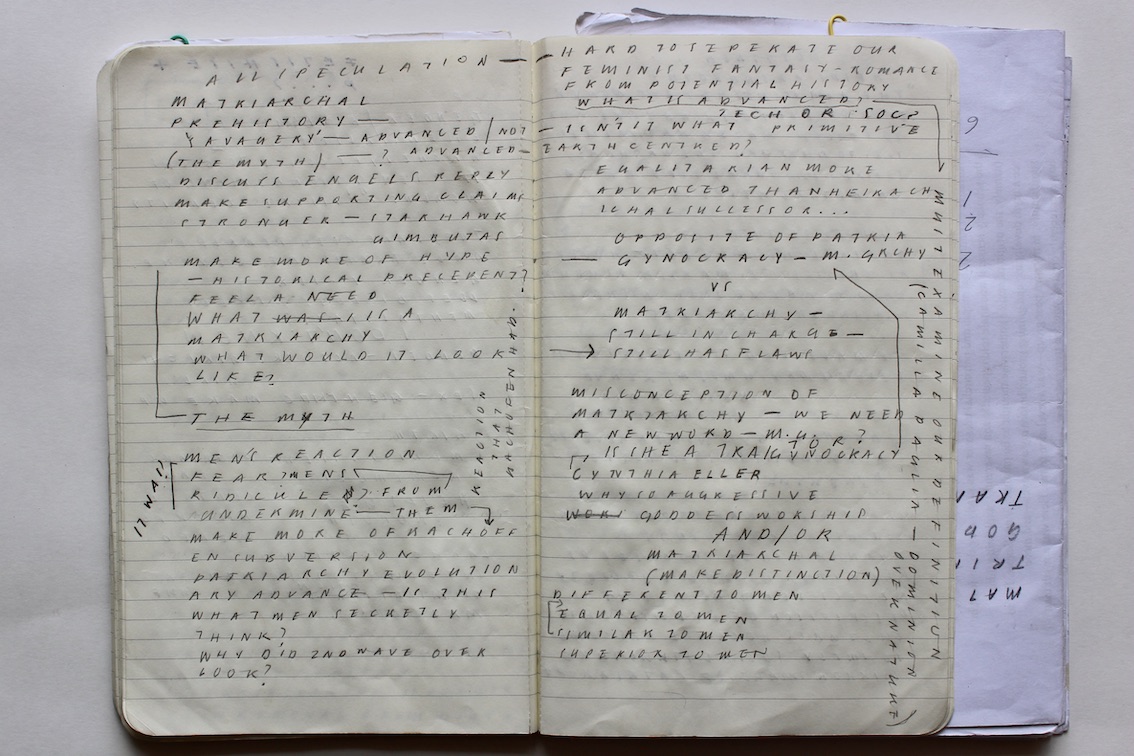 ALL SPECULATION —
MATRIARCHAL
PREHISTORY —
'SAVAGERY' — ADVANCED / NOT
(THE MYTH) — ? ADVANCED —
DISCUSS ENGELS REPLY
MAKE SUPPORTING CLAIMS
STRONGER — STARHAWK
GIMBUTAS
MAKE MORE OF HYPE
— HISTORICAL PRECEDENT?
FEEL A NEED
WHAT WAS / IS A
MATRIARCHY
WHAT WOULD IT LOOK
LIKE?
THE MYTH
MEN'S REACTION
FEAR? MENS
RIDICULE FROM
UNDERMINE — THEM
MAKE MORE OF BACHOFF
EN SUBVERSION
PATRIARCHY EVOLUTION
ARY ADVANCE — IS THIS
WHAT MEN SECRETLY
THINK?
WHY DID 2ND WAVE OVER
LOOK?
IT WAS!
REACTION
THAT
BACHOFEN HAD.
— HARD TO SEPERATE OUR
FEMINIST FANTASY – ROMANCE
FROM POTENTIAL HISTORY
WHAT IS ADVANCED? —
TECH OR SOC?
— ISN'T IT WHAT PRIMITIVE
EARTH CENTRED?
EQUALITARIAN MORE
ADVANCED THAN HEIRACH
ICHAL SUCCESSOR...
OPPOSITE OF PATRIA
— GYNOCRACY — M. GRCHY
VS
MATRIARCHY —
STILL IN CHARGE —
STILL HAS FLAWS
MISCONCEPTION OF
MATRIARCHY — WE NEED
A NEW WORD — M.G.?
GYNOCRACY
IS SHE A TRAITOR?
CYNTHIA ELLER
WHY SO AGGRESSIVE
WORK GODDESS WORSHIP
AND/OR
MATRIARCHAL
(MAKE DISTINCTION)
DIFFERENT TO MEN
EQUAL TO MEN
SIMILAR TO MEN
SUPERIOR TO MEN
MUST EXAMINE OUR DEFINITION
(CAMILLA PAGLIA — DOMINION
OVER NATURE)
6
1
2
2
TRAN
GOD
TRI
MAT